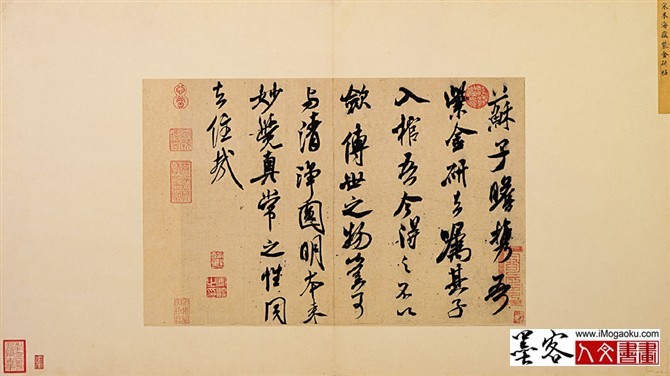 宋米海嶽紫金研帖
蘇子瞻携吾
紫金研去嘱其子
入棺吾今得之不以
斂傳世之物豈可
与清淨圓明本来
妙覺真常之性同
去住哉
www.iMogaoku.com
墨客人文書畫